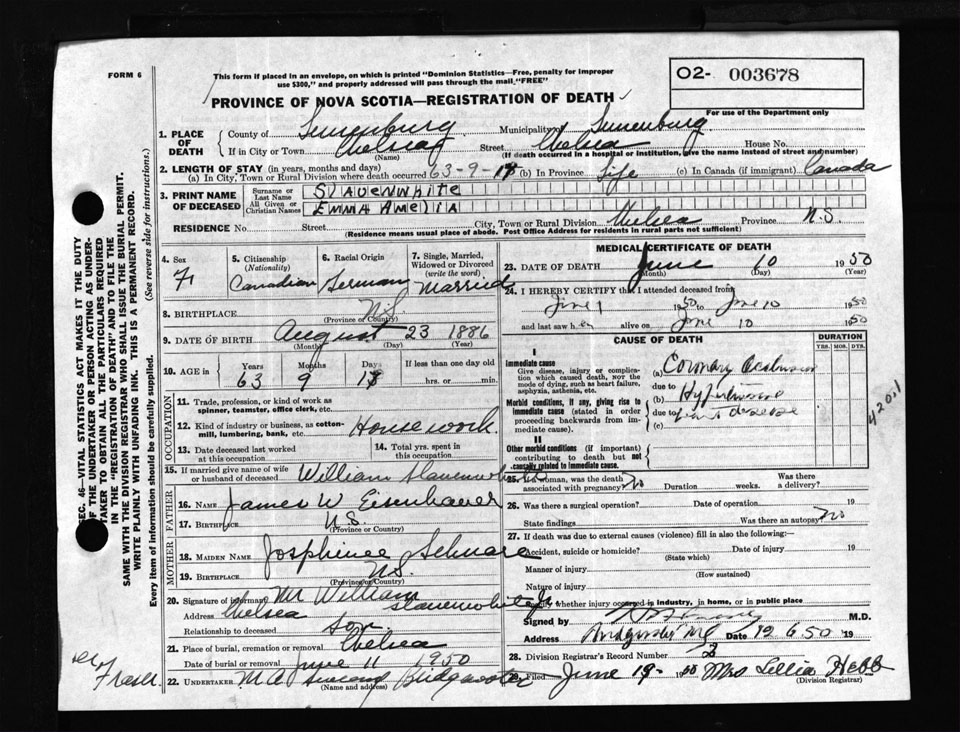 FORM 6
This form if placed in an envelope, on which is printed "Dominion Statistics—Free, penalty for improper
use $300," and properly addressed will pass through the mail "FREE"
O2- 003678
For use of the Department only
PROVINCE OF NOVA SCOTIA—REGISTRATION OF DEATH
1. PLACE OF DEATH
County of Lunenburg Municipality of Lunenburg
If in City or Town Chelsea Street Chelsea House No.
(Name) (If death occurred in a hospital or institution, give the name instead of street and number)
2. LENGTH OF STAY (in years, months and days)
(a) In City, Town or Rural Division where death occurred 63-9-18 (b) In Province Life (c) In Canada (if immigrant) Canada
3. PRINT NAME OF DECEASED
Surname or Last Name SLAUENWHITE
All Given or Christian Names EMMA AMELIA
RESIDENCE No. Street City, Town or Rural Division Chelsea Province N.S.
(Residence means usual place of abode. Post Office Address for residents in rural parts not sufficient)
4. Sex F
5. Citizenship (Nationality) Canadian
6. Racial Origin German
7. Single, Married, Widowed or Divorced (write the word) Married
8. BIRTHPLACE N.S.
(Province or Country)
9. DATE OF BIRTH August 23 1886
(Month) (Day) (Year)
10. AGE in Years Months Days If less than one day old
63 9 18 hrs. or min.
OCCUPATION
11. Trade, profession, or kind of work as spinner, teamster, office clerk, etc.
12. Kind of industry or business, as cotton-mill, lumbering, bank, etc. Housework.
13. Date deceased last worked at this occupation
14. Total yrs. spent in this occupation
15. If married give name of wife or husband of deceased William Slauenwhite
FATHER
16. NAME James W Eisenhauer
17. BIRTHPLACE N.S.
(Province or Country)
MOTHER
18. MAIDEN NAME Josphinee Schnare
19. BIRTHPLACE N.S.
(Province or Country)
20. Signature of informant Mr William Slauenwhite Jr.
Address Chelsea
Relationship to deceased son
21. Place of burial, cremation or removal Chelsea
Date of burial or removal June 11 1950
22. UNDERTAKER Bridgewater
(Name and address)
MEDICAL CERTIFICATE OF DEATH
23. DATE OF DEATH June 10 1950
(Month) (Day) (Year)
24. I HEREBY CERTIFY that I attended deceased from
June 1 1950 to June 10 1950
and last saw her alive on June 10 1950
CAUSE OF DEATH DURATION
YRS. MOS. DYS.
I
Immediate cause
Give disease, injury or complication which caused death, NOT the mode of dying, such as heart failure, asphyxia, asthenia, etc.
(a) Coronary Occlusion
due to
Morbid conditions, if any, giving rise to immediate cause (stated in order proceeding backwards from immediate cause).
(b) Hypertensive
due to
(c) heart disease
4201
II
Other morbid conditions (if important) contributing to death but not causally related to immediate cause.
25. If a woman, was the death associated with pregnancy? No Duration weeks. Was there a delivery?
26. Was there a surgical operation? Date of operation 19
State findings Was there an autopsy? No
27. If death was due to external causes (violence) fill in also the following:—
Accident, suicide or homicide? Date of injury 19
(State which)
Manner of injury
(How sustained)
Nature of injury
Specify whether injury occurred in industry, in home, or in public place
Signed by M.D.
Address Bridgewater NS Date 12 6 50 19
28. Division Registrar's Record Number 23
29. Filed June 19 1950 Mrs Lellia Hebb
(Division Registrar)
SEC. 46—VITAL STATISTICS ACT MAKES IT THE DUTY
OF THE UNDERTAKER OR PERSON ACTING AS UNDER-
TAKER TO OBTAIN ALL THE PARTICULARS REQUIRED
IN THE "REGISTRATION OF DEATH" AND TO FILE THE
SAME WITH THE DIVISION REGISTRAR WHO SHALL ISSUE THE BURIAL PERMIT.
WRITE PLAINLY WITH UNFADING INK. THIS IS A PERMANENT RECORD.
Every item of information should be carefully supplied. (See reverse side for instructions.)
Fraser